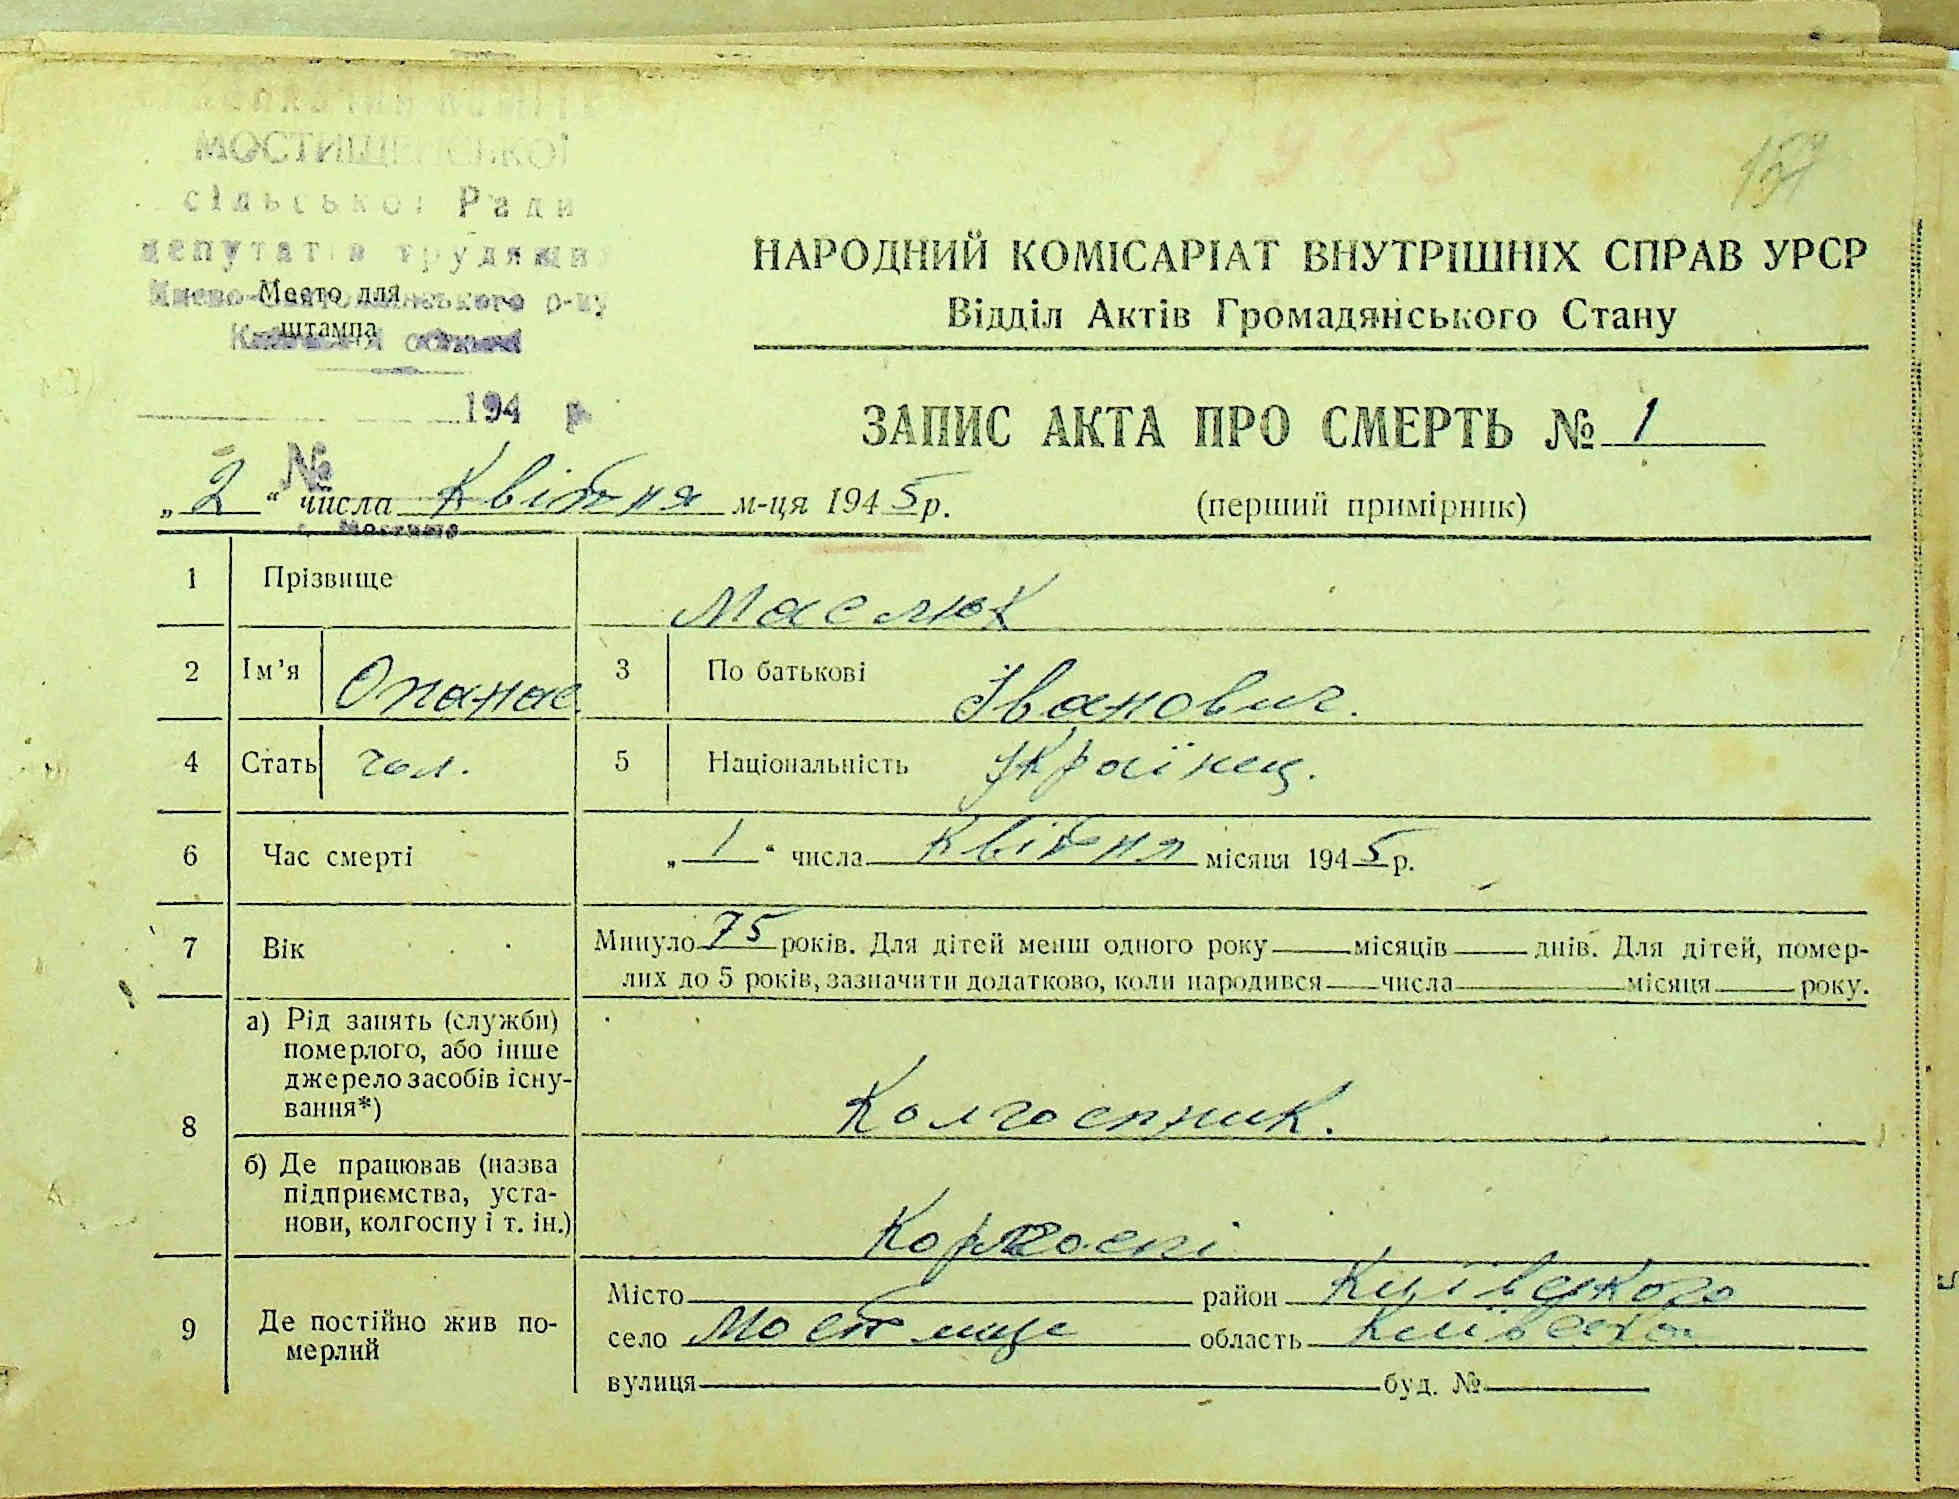 МОСТИЩЕНСЬКОЇ
сільської Ради
депутатів трудящих
Києво-Святошинського р-ну
Место для
штампа
Київської області
194 р.
№
1945
НАРОДНИЙ КОМІСАРІАТ ВНУТРІШНІХ СПРАВ УРСР
Відділ Актів Громадянського Стану
ЗАПИС АКТА ПРО СМЕРТЬ № 1
„2“ числа Квітня м-ця 1945 р.
(перший примірник)
1 Прізвище Маслюк
2 Ім’я Опанас 3 По батькові Іванович.
4 Стать чол. 5 Національність Українец.
6 Час смерті „1“ числа Квітня місяця 1945 р.
7 Вік Минуло 75 років. Для дітей менш одного року місяців днів. Для дітей, помер-
лих до 5 років, зазначити додатково, коли народився числа місяця року.
8 а) Рід занять (служби)
померлого, або інше
джерело засобів існу-
вання*)
Колгоспник.
б) Де працював (назва
підприємства, уста-
нови, колгоспу і т. ін.)
9 Де постійно жив по-
мерлий
Місто район Київського
село Мостище область Київська
вулиця буд. №